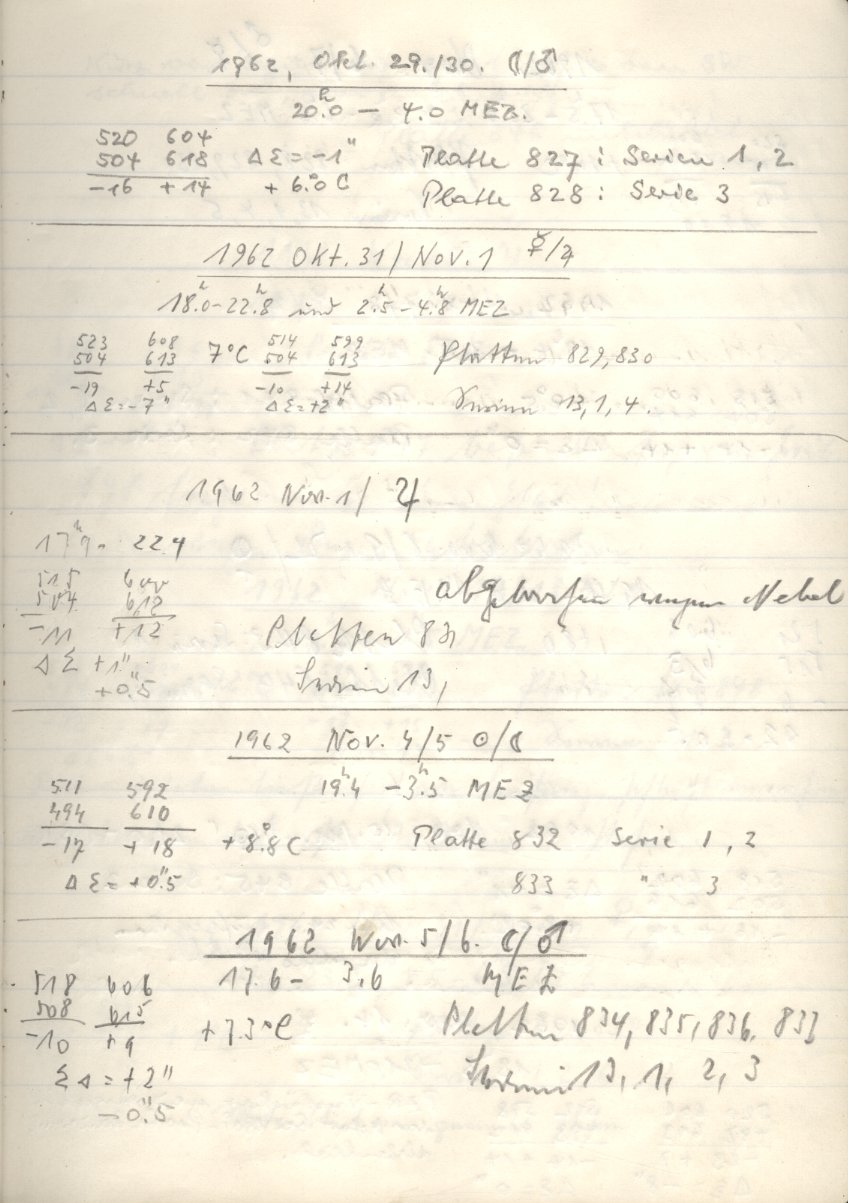 1962, Okt. 29./30. ☾/♂
20ʰ.0 — 4.0 MEZ.
520 604
504 618 Δ Σ = -1" Platte 827 : Serien 1, 2
-16 +14 + 6°.0 C Platte 828 : Serie 3
1962 Okt. 31 / Nov. 1 ☿/♃
18ʰ.0-22ʰ.8 und 2ʰ.5 - 4ʰ.8 MEZ
523 608 7°C 514 599 Platten 829, 830
504 613 504 613
-19 +5 -10 +14 Serien 13, 1, 4.
Δ Σ = -7" Δ Σ = +2"
1962 Nov. 1 / ♃
17ʰ - 224
515 abgebrochen wegen Nebel
504 612
-11 +12 Platten
Δ Σ +1" Serien 13,
+0".5
1962 Nov. 4/5 ☉/☾
511 592 19ʰ.4 - 3ʰ.5 MEZ
494 610
-17 + 18 + 8°.8 C Platte 832 Serie 1, 2
Δ Σ = +0".5 833 " 3
1962 Nov. 5/6. ☾/♂
518 606 17.6 - 3.6 MEZ
508 615
-10 +9 +7.3°C Platten 834, 835, 836, 833
Σ Δ = +2" Serien 13, 1, 2, 3
-0".5